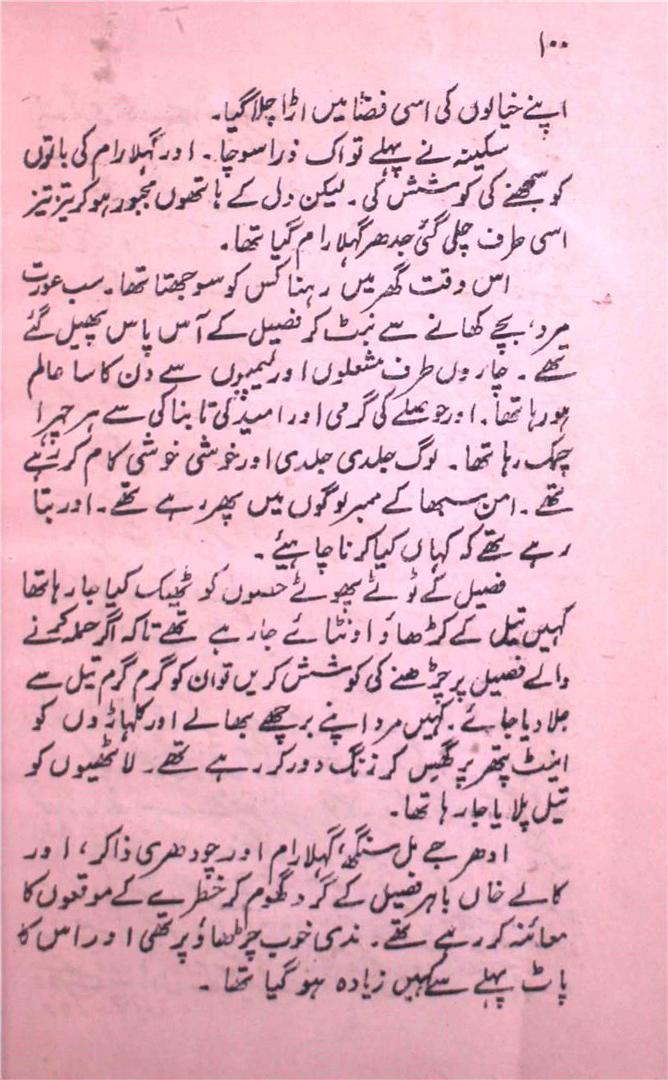 ۱۰۰
اپنے خیالوں کی اسی فضا میں اڑا چلا گیا۔
سکینہ نے پہلے تو اک ذرا سوچا۔ اور گہلا رام کی باتوں
کو سمجھنے کی کوشش کی۔ لیکن دل کے ہاتھوں مجبور ہو کر تیز تیز
اسی طرف چلی گئی جدھر گہلا رام گیا تھا۔
اس وقت گھر میں رہنا کس کو سوجھتا تھا۔ سب عورت
مرد، بچے کھانے سے نبٹ کر فصیل کے آس پاس پھیل گئے
تھے۔ چاروں طرف مشعلوں اور لیمپوں سے دن کا سا عالم
ہو رہا تھا۔ اور حوصلے کی گرمی اور امید کی تابناکی سے ہر چہرا
چمک رہا تھا۔ لوگ جلدی جلدی اور خوشی خوشی کام کر رہے
تھے۔ امن سبھا کے ممبر لوگوں میں پھر رہے تھے۔ اور بتا
رہے تھے کہ کہاں کیا کرنا چاہئیے۔
فصیل کے ٹوٹے پھوٹے حصوں کو ٹھیک کیا جا رہا تھا
کہیں تیل کے کڑھاؤ اونٹائے جا رہے تھے تاکہ اگر حملہ کرنے
والے فصیل پر چڑھنے کی کوشش کریں تو ان کو گرم گرم تیل سے
جلا دیا جائے۔ کہیں مرد اپنے برچھے بھالے اور کلہاڑوں کو
اینٹ پتھر پر گھِس کر زنگ دور کر رہے تھے۔ لاٹھیوں کو
تیل پلایا جا رہا تھا۔
ادھر جے مل سنگھ، گہلا رام اور چودھری ذاکر، اور
کالے خاں باہر فصیل کے گرد گھوم کر خطرے کے موقعوں کا
معائنہ کر رہے تھے۔ ندی خوب چڑھاؤ پر تھی اور اس کا
پاٹ پہلے سے کہیں زیادہ ہو گیا تھا۔